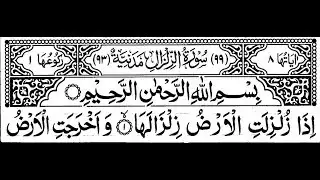 اٰيَاتُهَا ٨ (٩٩) سُوْرَةُ الزِّلْزَالِ مَدَنِيَّةٌ (٩٣) رُكُوْعُهَا ١
بِسْمِ اللّٰهِ الرَّحْمٰنِ الرَّحِيْمِ
اِذَا زُلْزِلَتِ الْاَرْضُ زِلْزَالَهَا ۙ ١ وَ اَخْرَجَتِ الْاَرْضُ